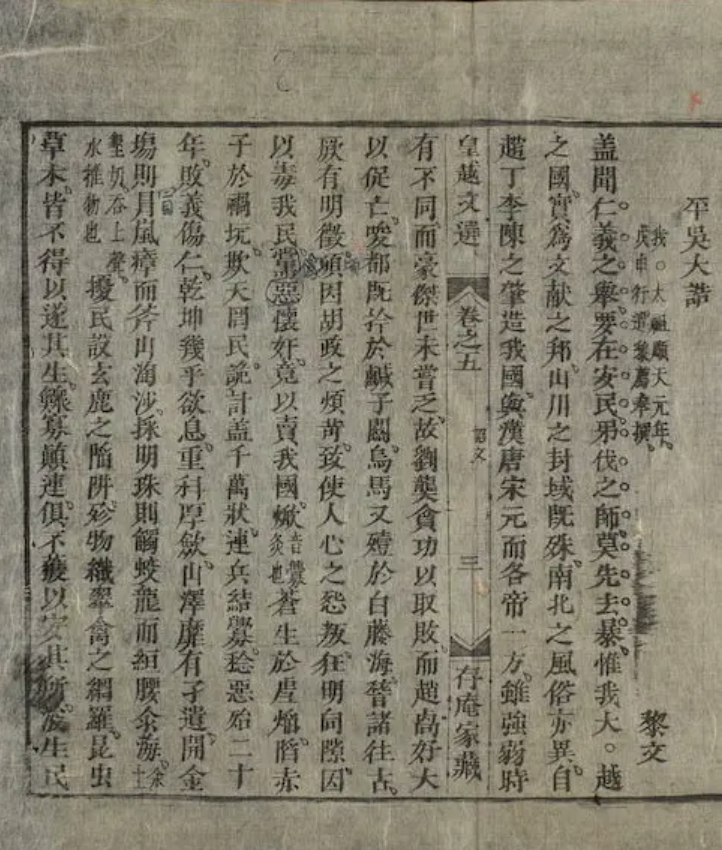 平吳大誥
我。太祖順天元年。
戊申行遣黎廌奉撰。
黎文
盖聞仁義之舉。要在安民。弔伐之師。莫先去暴。惟我大。越
之國。實爲文献之邦。山川之封域既殊。南北之風俗亦異。自
趙丁李陳之肇造我國。與漢唐宋元而各帝一方。雖強弱時
皇越文選 卷之五 誥文 三 存庵家藏
有不同。而豪傑世未嘗乏。故劉龑貪功以取敗。而趙卨好大
以促亡。唆都既擒於鹹子關。烏馬又殪於白藤海。稽諸往古。
厥有明徵。頃因胡政之煩苛。致使人心之怨叛。狂明伺隙。因
以毒我民。黨惡懷奸。竟以賣我國。焮音釁炙也蒼生於虐焰。陷赤
子於禍坑。欺天罔民。詭計盖千萬狀。連兵結釁。稔惡殆二十
年。敗義傷仁。乾坤幾乎欲息。重科厚歛。山澤靡有孑遺。開金
塲則冒嵐瘴而斧山淘沙。採明珠則觸蛟龍而絙腰汆海。汆土
墾切吞上聲。水推物也
擾民設玄鹿之陷阱。殄物織翠禽之網羅。昆虫
草木皆不得以遂其生。鰥寡顛連。俱不獲以安其所。浚生民